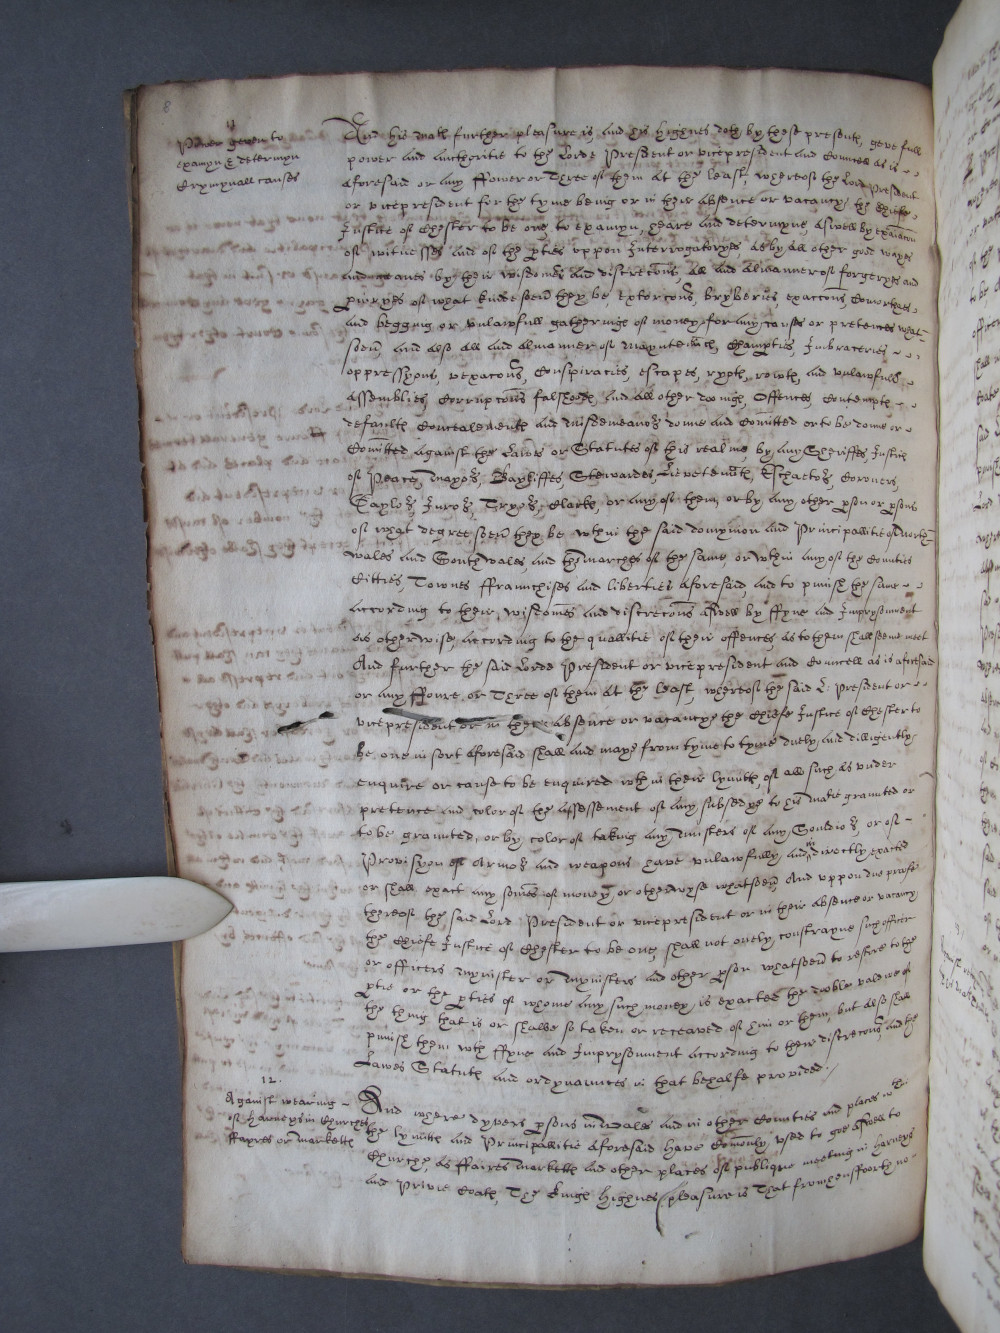 8
11
Power geven to
examyn & determyn
Crymynall causes
And his Matis further pleasure is, and his highnes doth by these presents, geve full
power and aucthoritie to the Lorde President or vicepresident and Councell as is
aforesaid or any ffower or Three of them at the least, whereof the Lord President
or vicepresident for the tyme being or in their absence or vacancy, the Chiefe
Justice of Chester to be one, to examyn, heare and determyne, aswell by examinacon
of witnesses and of the pties uppon Interrogatoryes, as by all other good wayes
and meanes by their wisdomes and discrecons, all and almanner of forgeryes and
piuryes of what kinde soever they be, extorcons, bryberies, exaccons, Comorthes
and begging or unlawfull gatherings of money, for any causes or pretences what
soever, and also all and almanner of mayntenance, Champties, Imbraceries
oppressyons, vexacons, Conspiracies, escapes, ryotts, rowts, and unlawfull
assemblies, Corrupcons falshoods, and all other doings, Offences Contempts
defaults Concealements and misdemeanors done and Comitted or to be done or
Comitted against the Lawes or Statutes of this realme, by any Sheriffes, Justices
of Peace, Mayors, Bayliffes Stewardes, Lievetenants, Eschaetors, Coroners,
Gaylors, Jurors, Tryors, Clarks, or any of them, or by any other pson or psons
of what degree soever they be wthin the said domynion and Principallitie of North
wales and South wales, and the marches of the same, or wthin any of the Counties
Citties, Townes ffranchises and liberties aforesaid, and to punish the same
according to their wisdomes and discrecons aswell by ffyne and Imprysonment
as otherwise, according to the quallitie of their offences, as to them shall seeme meet
And further the said Lorde President or vicepresident and Councell as is aforesaid
or any ffowre, or Three of them at the least, whereof the said L: President or
vicepresident or in their absence or vacancye the Chiefe Justice of Chester to
be one in sort aforesaid shall and maye from tyme to tyme duely, and dilligently
enquire or cause to be enquired wthin their lymitts, of all such as under
pretence and color of the Assessement of any subsedye to his Matie graunted or
to be graunted, or by color of taking any Musters of any Souldiors, or of
Provisyon of Armor and weapons have unlawfully and indirectly exacted
or shall exact any somes of money, or otherwyse whatsoever And uppon due proofe
thereof the said Lord President or vicepresident or in their absence or vacancy
the Chiefe Justice of Chester to be one, shall not onely constrayne such officer
or officers mynister or mynisters and other pson whatsoever to restore to the
ptie or the pties of whome any such money is exacted the double value of
the thing that is or shalbe so taken or receaved of him or them, but also shall
punish them wth ffyne and Imprysonment according to their discrecons, and the
Lawes Statuts and ordynaunces in that behalfe provided.
12.
Against wearing
of harneys in Churches
ffayres or marketts
And where dyvers psons in wales and in other Counties and places wthin
the lymitts and Principallitie aforesaid have Comonly used to goe aswell to
Churche, as ffaires Marketts and other places of publique meeting in harneys
and Privie Coats, The Kings highnes pleasure is That from hensfoorth no